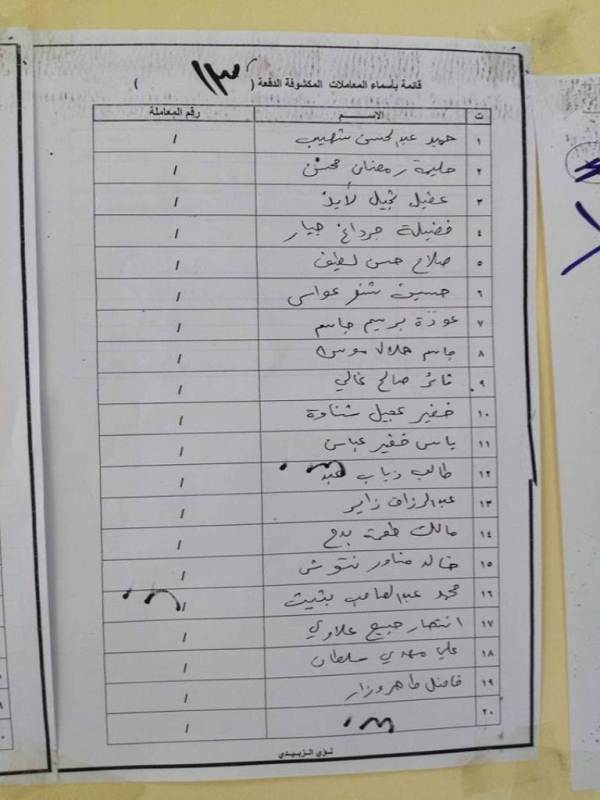 قائمة بأسماء المعاملات المكشوفة الدفعة ( ١٣ )
ت الاسم رقم المعاملة
١ حميد عبد الحسن شهيب /
٢ حليمة رمضان محسن /
٣ عقيل لايذ /
٤ فضيلة جرداغ جبار /
٥ صلاح حسن لطيف /
٦ حسين شنو عواس /
٧ عودة بريسم جاسم /
٨ جاسم هلال موسى /
٩ ثائر صالح غالي /
١٠ خضير عجيل شناوة /
١١ ياس خضير عباس /
١٢ طالب ذياب عبد /
١٣ عبد الرزاق زاير /
١٤ مالك طعمة بدح /
١٥ خالد مناور نتوش /
١٦ محمد عبد الصاحب بثيث /
١٧ انتصار حبيج علاوي /
١٨ علي مهدي سلطان /
١٩ فاضل طاهر وزار /
٢٠ /
لؤي الزبيدي